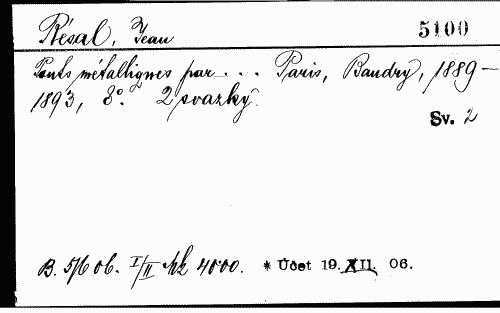 Résal, Jean 5100
Ponts métalliques par . . . Paris, Baudry, 1889–
1893, 8°. 2 svazky.
Sv. 2
B. 5/6 06. I/II Mk 4000. * Účet 19. XII. 06.